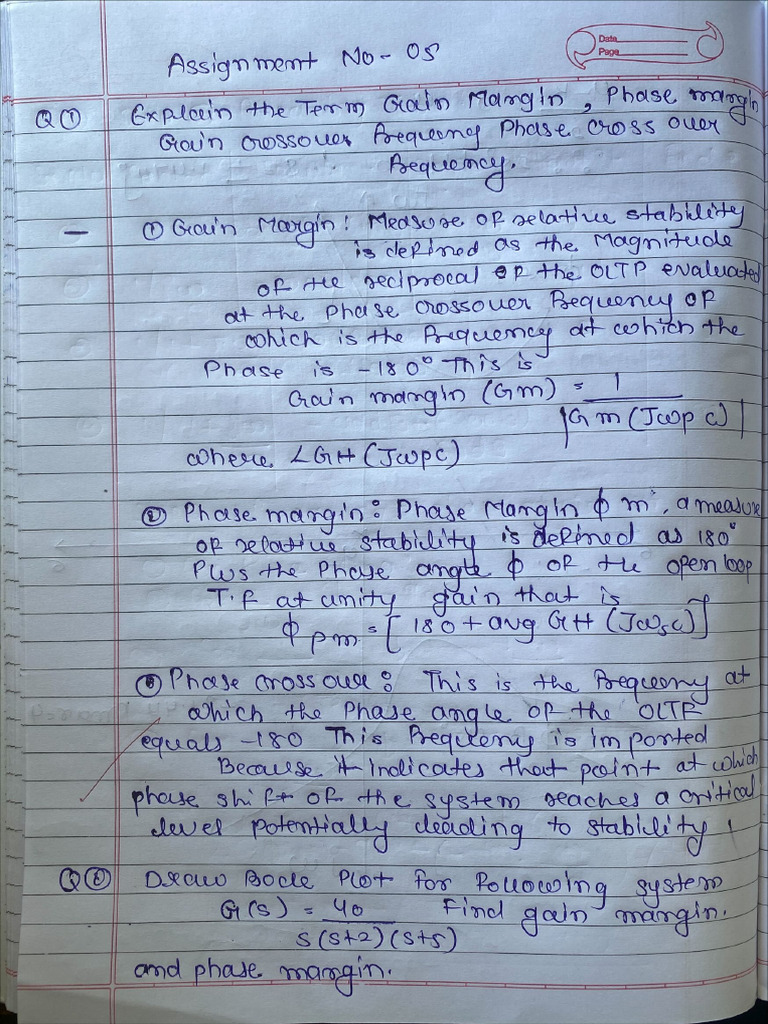 Date
Page
Assignment No - 05
Q ① Explain the Term Gain Margin, Phase margin
Gain crossover frequency Phase cross over
frequency.
– ① Gain Margin: Measure of relative stability
is defined as the Magnitude
of the reciprocal of the OLTF evaluated
at the phase crossover frequency of
which is the frequency at which the
Phase is -180° This is
Gain margin (Gm) = 1
|Gm(Jωpc)|
where ∠GH(Jωpc)
② Phase margin: Phase Margin ϕm, a measure
of relative stability is defined as 180°
Plus the Phase angle ϕ of the open loop
T.F at unity gain that is
ϕpm = [180 + avg GH (Jωsc)]
③ Phase crossover: This is the frequeny at
which the Phase angle of the OLTF
equals -180 This frequeny is imported
Because it indicates that point at which
phase shift of the system reaches a critical
level potentially leading to stability
Q ② Draw Bode Plot for following system
G(s) = 40 Find gain margin.
s(s+2)(s+5)
and phase margin.